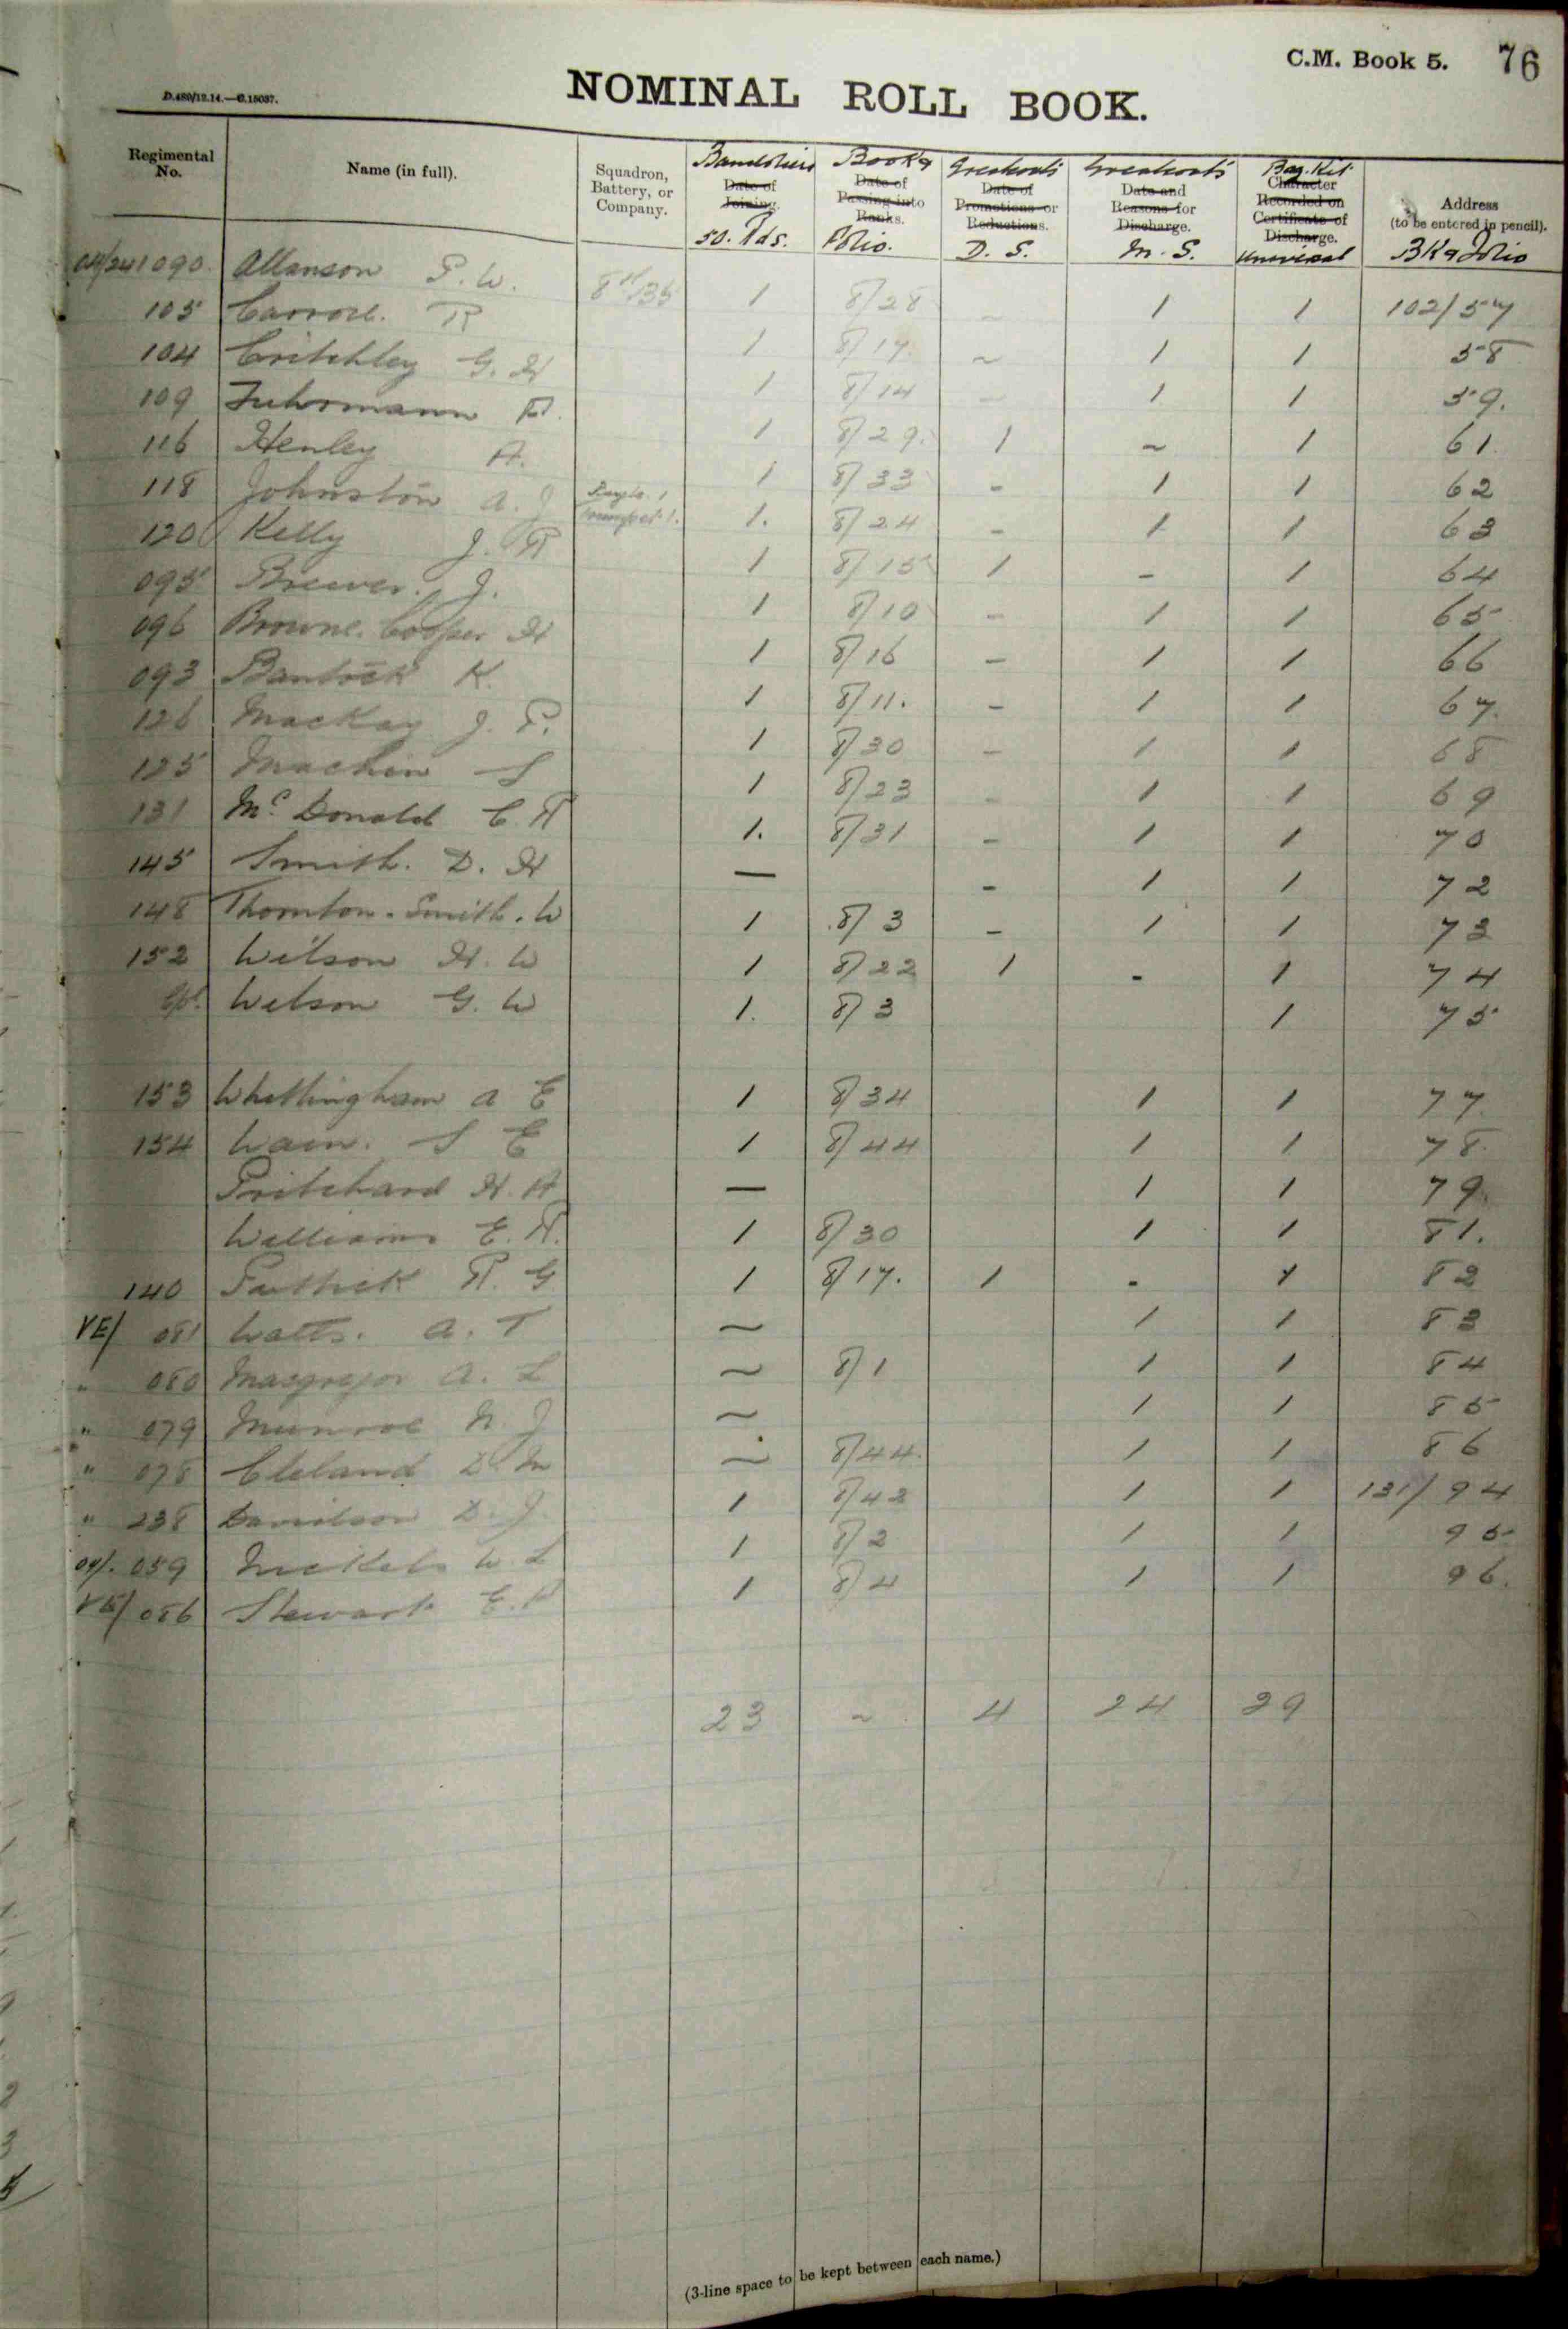 C.M. Book 5. 76
D.480/12.14.—C.15037.
NOMINAL ROLL BOOK.
Regimental No. Name (in full). Squadron, Battery, or Company. Bandoliers Date of Joining. 50. Rds. Book 9 Date of Passing into Ranks. Folio. Greatcoats Date of Promotions or Reductions. D. S. Greatcoats Date and Reasons for Discharge. M. S. Bag. Kit. Character Recorded on Certificate of Discharge. Universal Address (to be entered in pencil). BK 9 Folio
M/241090. Allanson P. W. 1 8/28 ~ 1 1 102/57
105 Carroll. R 1 8/17. ~ 1 1 58
104 Critchley G. H 1 8/14 - 1 1 59.
109 Fuhrmann 1 8/29. 1 ~ 1 61.
116 Henley A. 1 8/33 - 1 1 62
118 Johnston A. J 1. 8/24 - 1 1 63
120 Kelly J. R 1 8/15 1 - 1 64
095 Brewer. J. 1 8/10 - 1 1 65
096 Browne. Cooper H 1 8/16 - 1 1 66
093 Bantock K. 1 8/11. - 1 1 67.
126 MacKay J. P. 1 8/30 - 1 1 68
125 Machin S 1 8/23 - 1 1 69
131 Mc Donald C. R 1. 8/31 - 1 1 70
145 Smith. D. H — - 1 1 72
148 Thornton. Smith. W 1 8/3 - 1 1 73
152 Wilson H. W 1 8/22 1 - 1 74
Wilson G. W 1. 8/3 1 75
153 Whittingham A E 1 8/34 1 1 77.
154 Wain. S E 1 8/44 1 1 78.
Pritchard H. A — 1 1 79.
Williams E. R. 1 8/30 1 1 81.
140 R. G 1 8/17. 1 - 1 82
VE/ 081 Watts. A. T ~ 1 1 83
" 080 Macgregor A. L ~ 8/1 1 1 84
" 079 Munroe N. J ~ 1 1 85
" 078 Cleland D. M ~ 8/44. 1 1 86
" 238 Davidson D. J. 1 8/42 1 1 131/94
059 W. L 1 8/2 1 1 95
VE/ 086 Stewart E. R 1 8/4 1 1 96.
23 ~ 4 24 29
(3-line space to be kept between each name.)